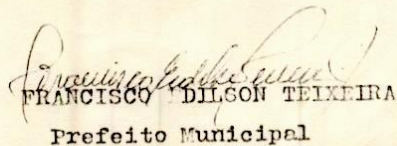 FRANCISCO EDILSON TEIXEIRA
Prefeito Municipal